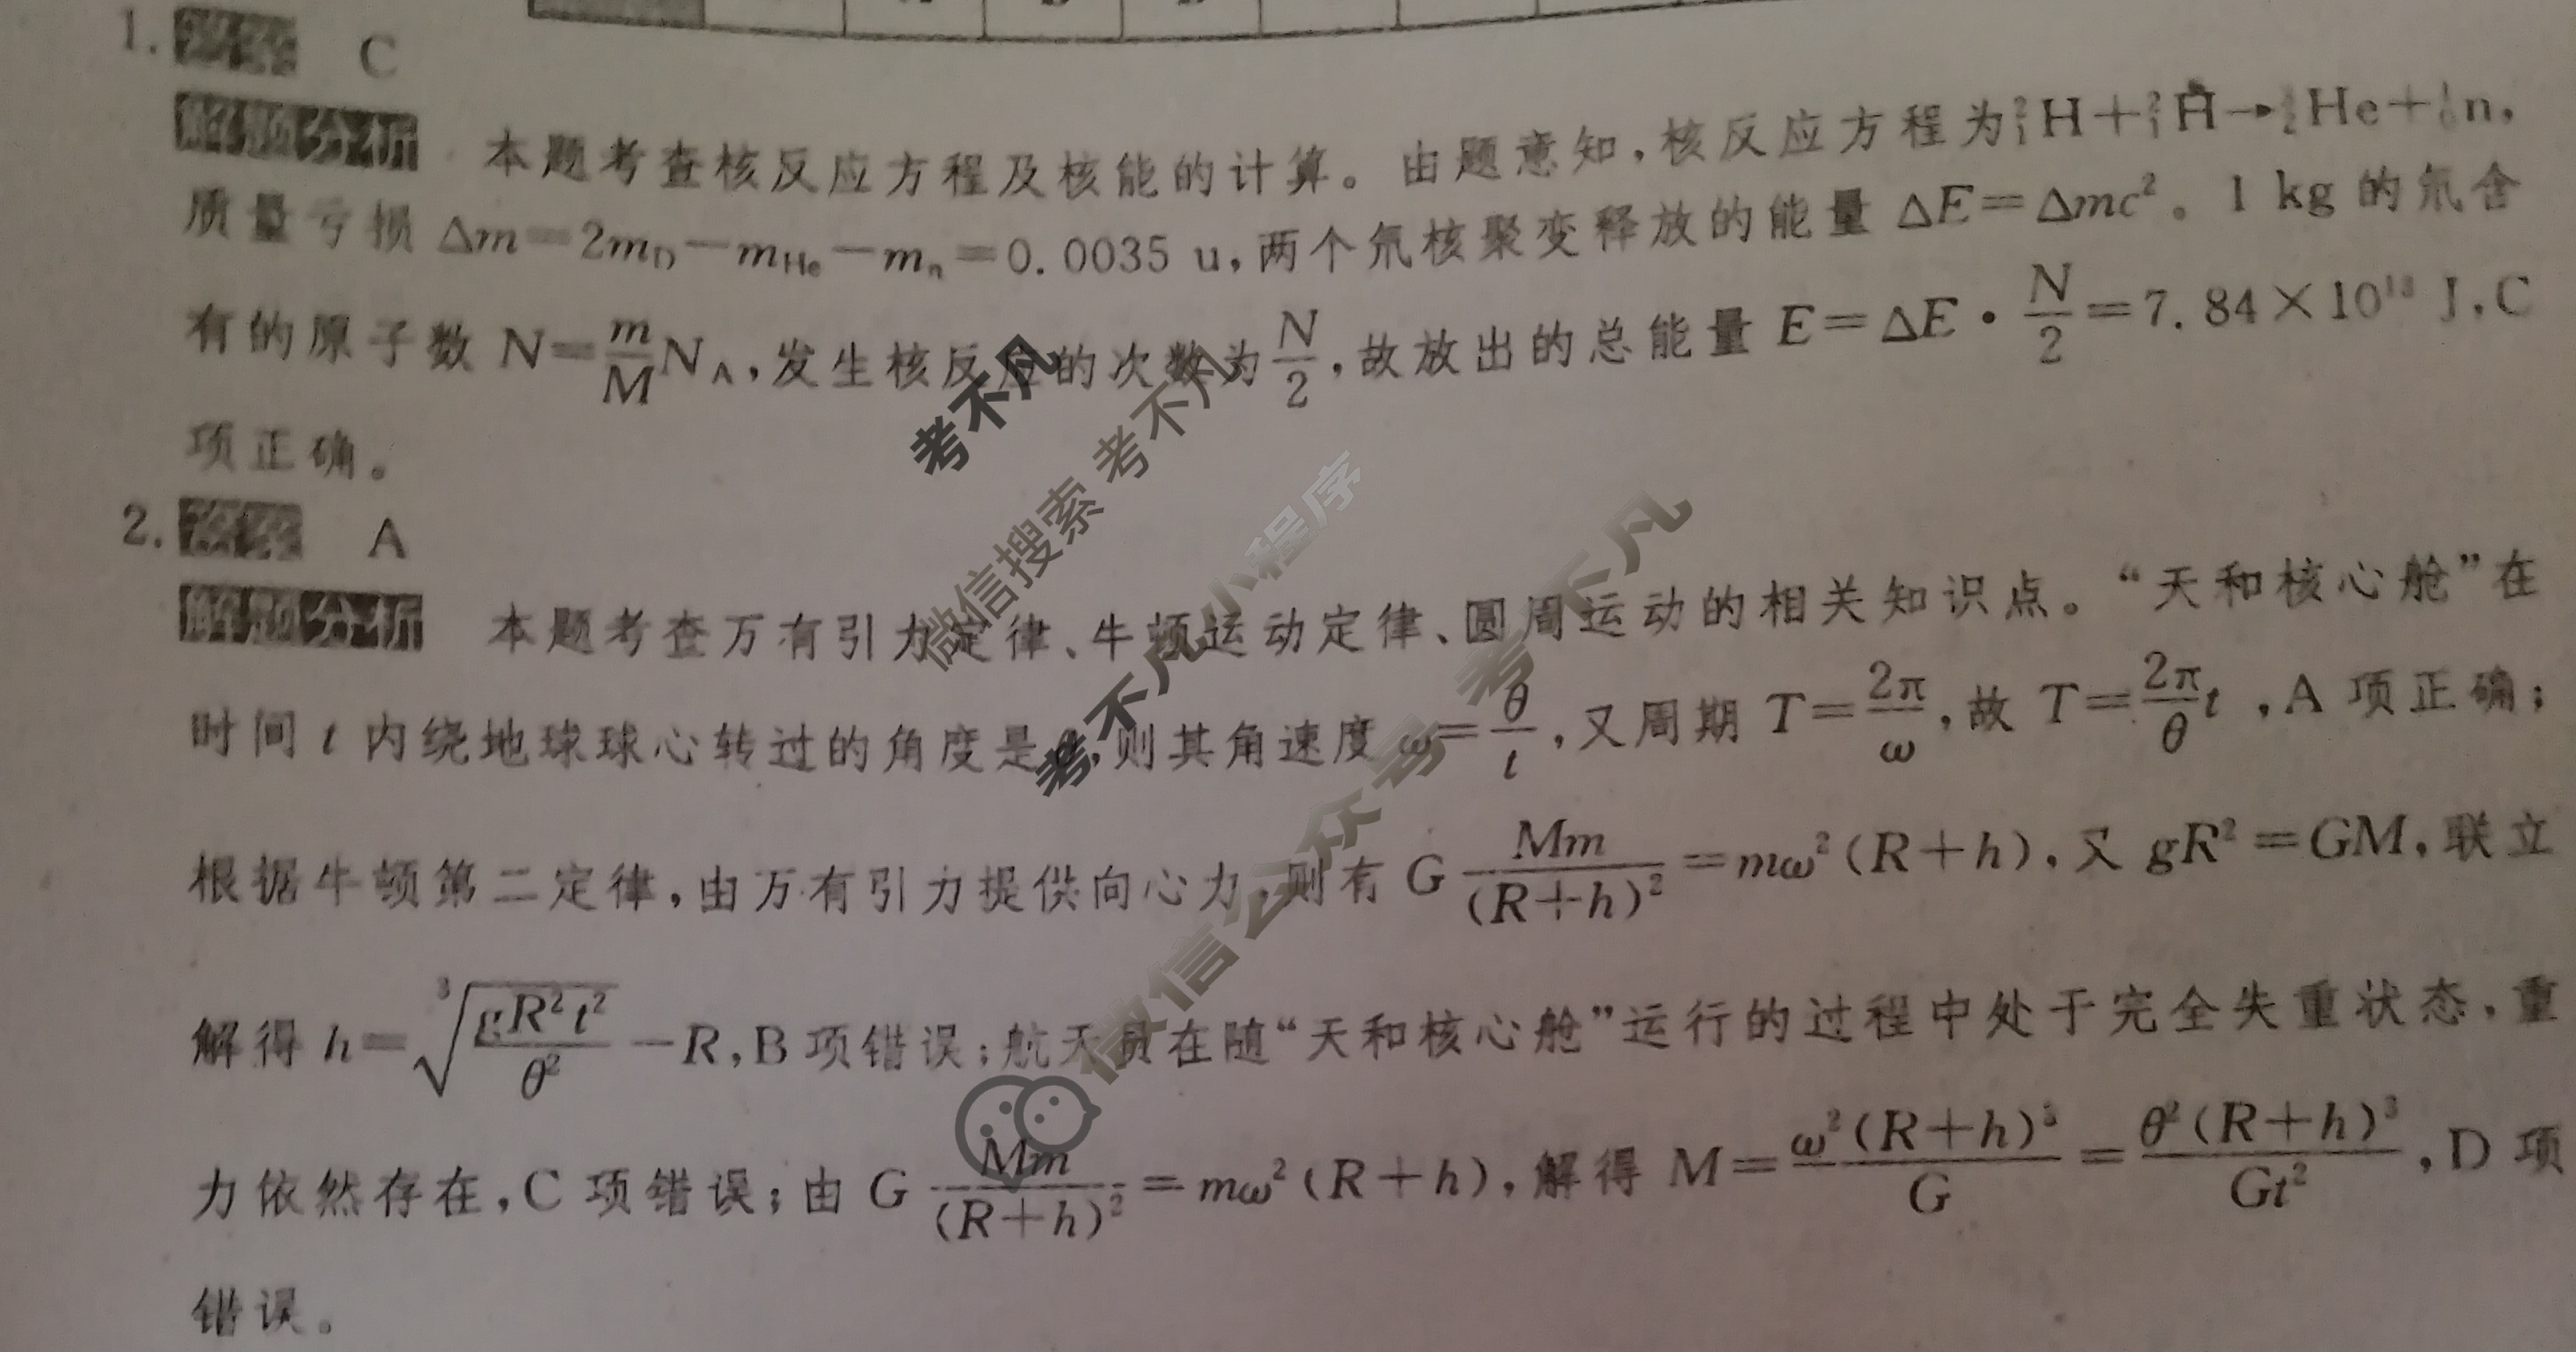 1. 答案 C
解题分析 本题考查核反应方程及核能的计算。由题意知,核反应方程为²₁H+²₁H→³₂He+¹₀n,
质量亏损 Δm=2m_D-m_He-m_n=0.0035 u,两个氘核聚变释放的能量 ΔE=Δmc²。1 kg 的氘含
有的原子数 N=m/M N_A,发生核反应的次数为N/2,故放出的总能量 E=ΔE·N/2=7.84×10¹³ J,C
项正确。
2. 答案 A
解题分析 本题考查万有引力定律、牛顿运动定律、圆周运动的相关知识点。“天和核心舱”在
时间 t 内绕地球球心转过的角度是θ,则其角速度 ω=θ/t,又周期 T=2π/ω,故 T=2π/θ t,A 项正确;
根据牛顿第二定律,由万有引力提供向心力,则有 G Mm/(R+h)²=mω²(R+h),又 gR²=GM,联立
解得 h=∛(gR²t²/θ²)-R,B 项错误;航天员在随“天和核心舱”运行的过程中处于完全失重状态,重
力依然存在,C 项错误;由 G Mm/(R+h)²=mω²(R+h),解得 M=ω²(R+h)³/G=θ²(R+h)³/Gt²,D 项
错误。
考不凡
微信搜索 考不凡
考不凡 小程序
微信公众号 考不凡